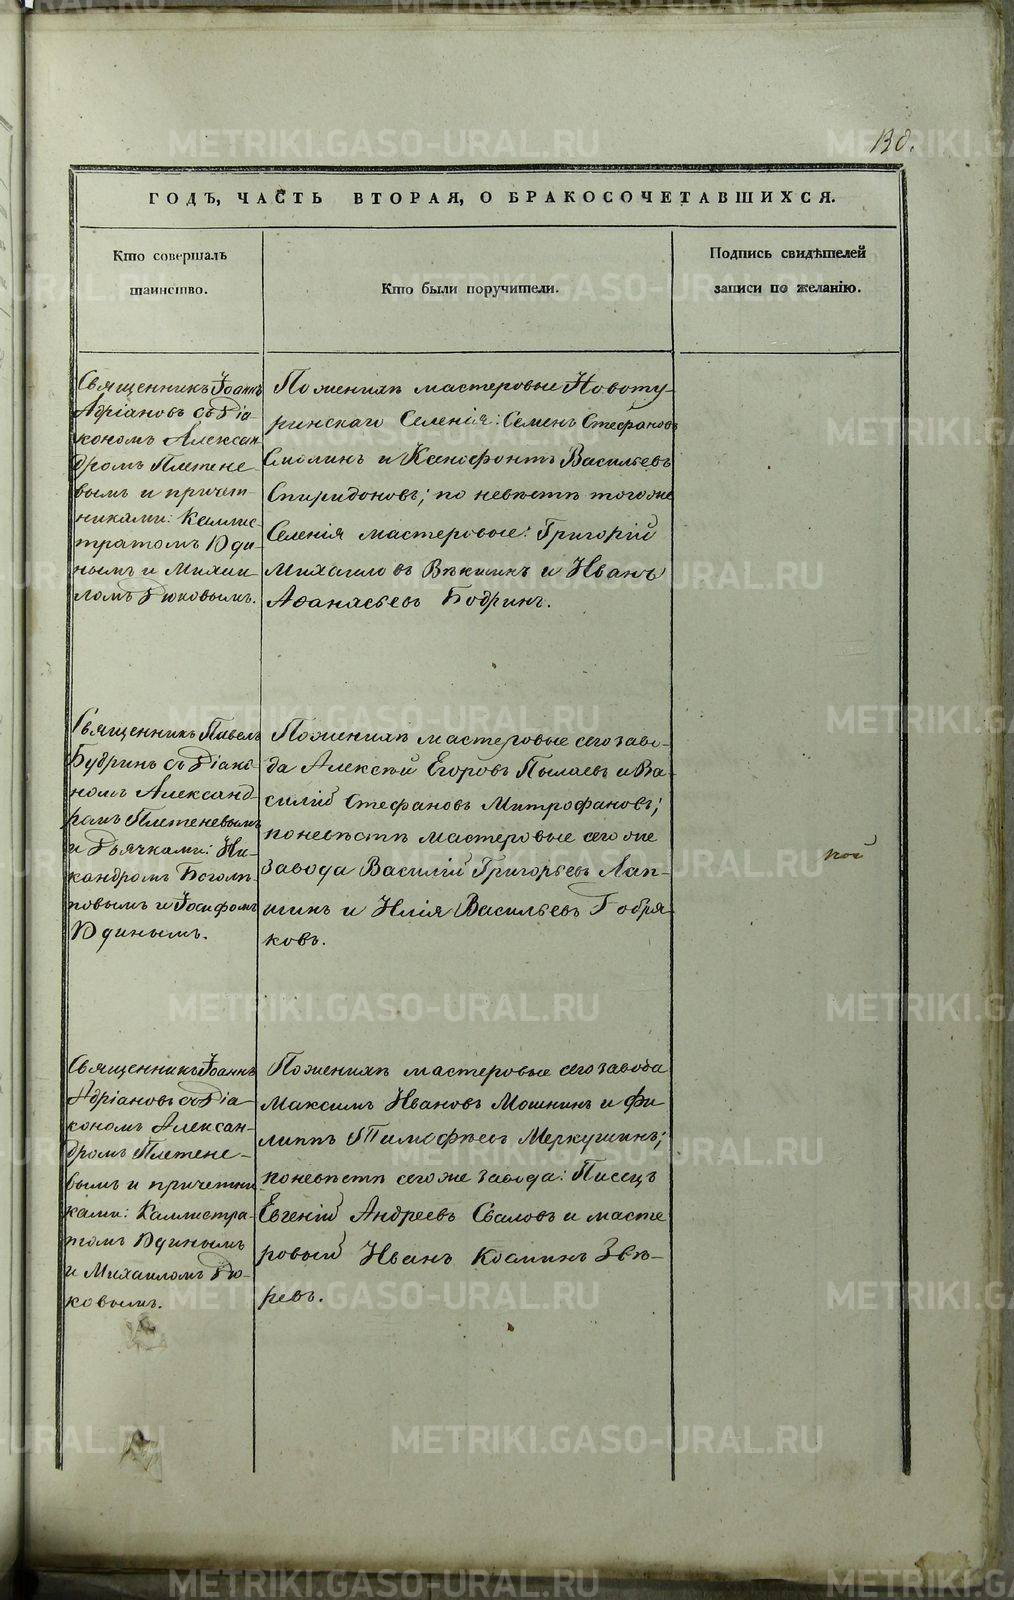 130.
ГОДЪ, ЧАСТЬ ВТОРАЯ, О БРАКОСОЧЕТАВШИХСЯ.
Кто совершалъ
таинство.
Кто были поручители.
Подпись свидѣтелей
записи по желанію.
Священникъ Іоаннъ
Адріановъ съ Діа-
кономъ Алексан
дромъ Плетене
вымъ и причет
никами: Каллис-
тратомъ Юди-
нымъ и Михаи
ломъ Дюковымъ.
По женихѣ мастеровые Новоту-
ринскаго Селенія: Семенъ Стефановъ
Смолинъ и Ксенофонтъ Васильевъ
Спиридоновъ; по невѣстѣ тогоже
Селенія мастеровые: Григорій
Михаиловъ Вѣкшинъ и Иванъ
Афанасьевъ Бодринъ.
Священникъ Павелъ
Будринъ съ Діако-
номъ Александ-
ромъ Плетеневымъ
и Дьячками: Ни-
кандромъ Боголѣ-
повымъ и Іосифомъ
Юдинымъ.
По женихѣ мастеровые сего заво-
да Алексѣй Егоровъ Пылаевъ и Ва-
силій Стефановъ Митрофановъ;
по невѣстѣ мастеровые сего же
завода Василій Григорьевъ Лап-
шинъ и Илія Васильевъ Добря-
ковъ.
Священникъ Іоаннъ
Адріановъ съ Діа-
кономъ Алексан-
дромъ Плетене-
вымъ и причетни
ками: Каллистра-
томъ Юдинымъ
и Михаиломъ Дю-
ковымъ.
По женихѣ мастеровые сего завода
Максимъ Ивановъ Мошнинъ и Фи-
липпъ Тимофѣевъ Меркушинъ;
по невѣстѣ сего же завода: Писецъ
Евгеній Андреевъ Сваловъ и масте
ровый Иванъ Козминъ Звѣ-
ревъ.
METRIKI.GASO-URAL.RU